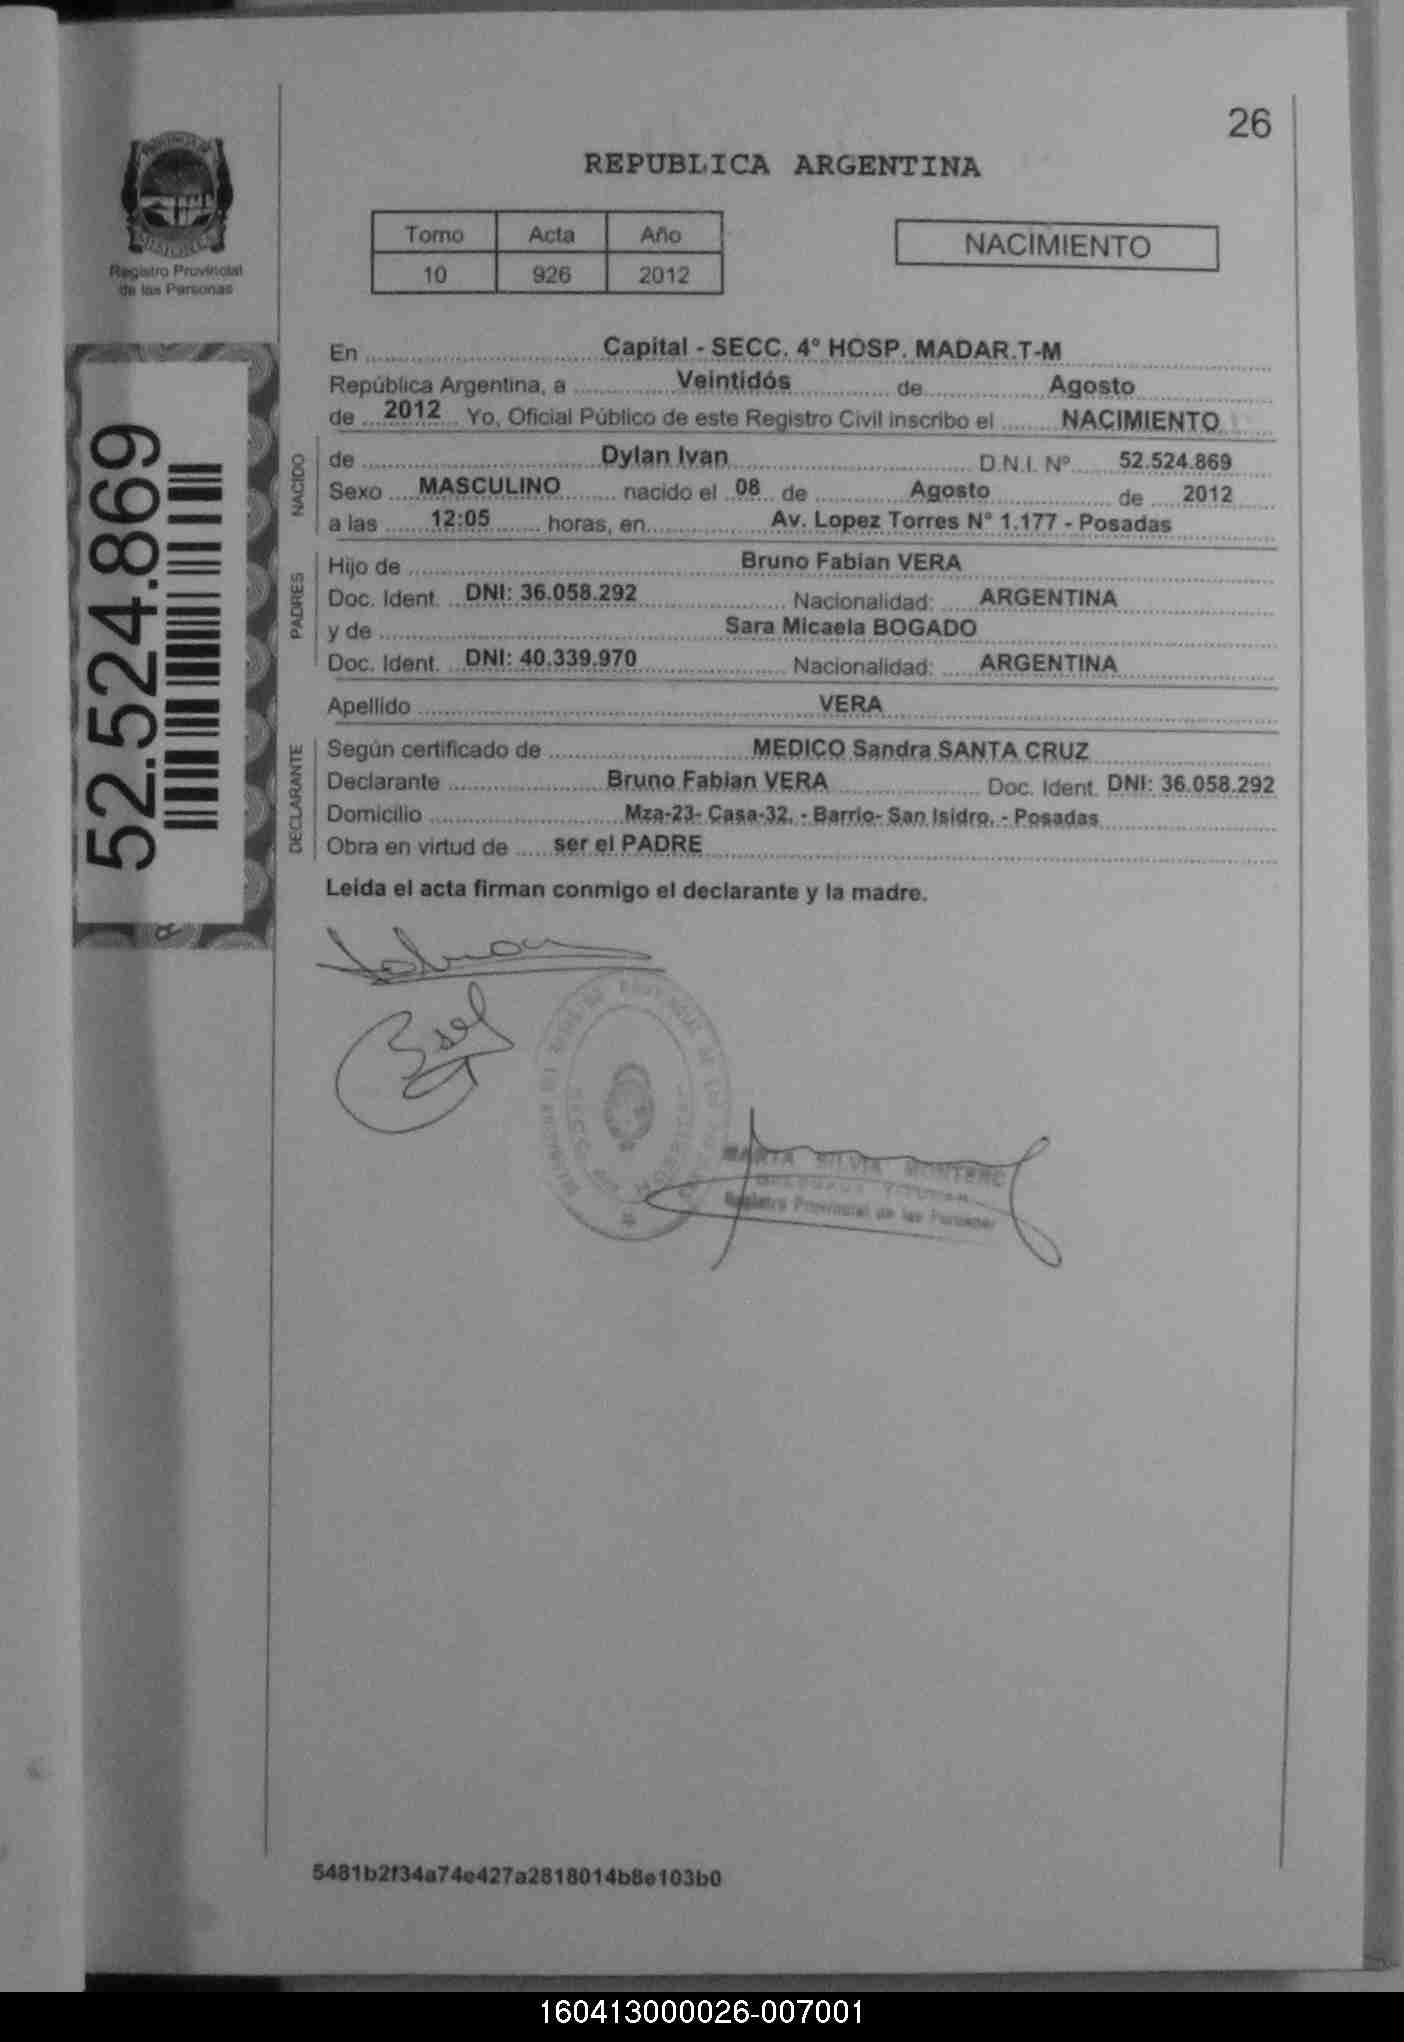 26
REPUBLICA ARGENTINA
Registro Provincial
de las Personas
Tomo Acta Año
10 926 2012
NACIMIENTO
52.524.869
En Capital - SECC. 4° HOSP. MADAR.T-M
República Argentina, a Veintidós de Agosto
de 2012 Yo, Oficial Público de este Registro Civil inscribo el NACIMIENTO
NACIDO
de Dylan Ivan D.N.I. Nº 52.524.869
Sexo MASCULINO nacido el 08 de Agosto de 2012
a las 12:05 horas, en Av. Lopez Torres N° 1.177 - Posadas
PADRES
Hijo de Bruno Fabian VERA
Doc. Ident. DNI: 36.058.292 Nacionalidad: ARGENTINA
y de Sara Micaela BOGADO
Doc. Ident. DNI: 40.339.970 Nacionalidad: ARGENTINA
Apellido VERA
DECLARANTE
Según certificado de MEDICO Sandra SANTA CRUZ
Declarante Bruno Fabian VERA Doc. Ident. DNI: 36.058.292
Domicilio Mza-23- Casa-32. - Barrio- San Isidro. - Posadas
Obra en virtud de ser el PADRE
Leida el acta firman conmigo el declarante y la madre.
MARTA SILVIA MONTERO
Registro Provincial de las Personas
5481b2f34a74e427a2818014b8e103b0
160413000026-007001